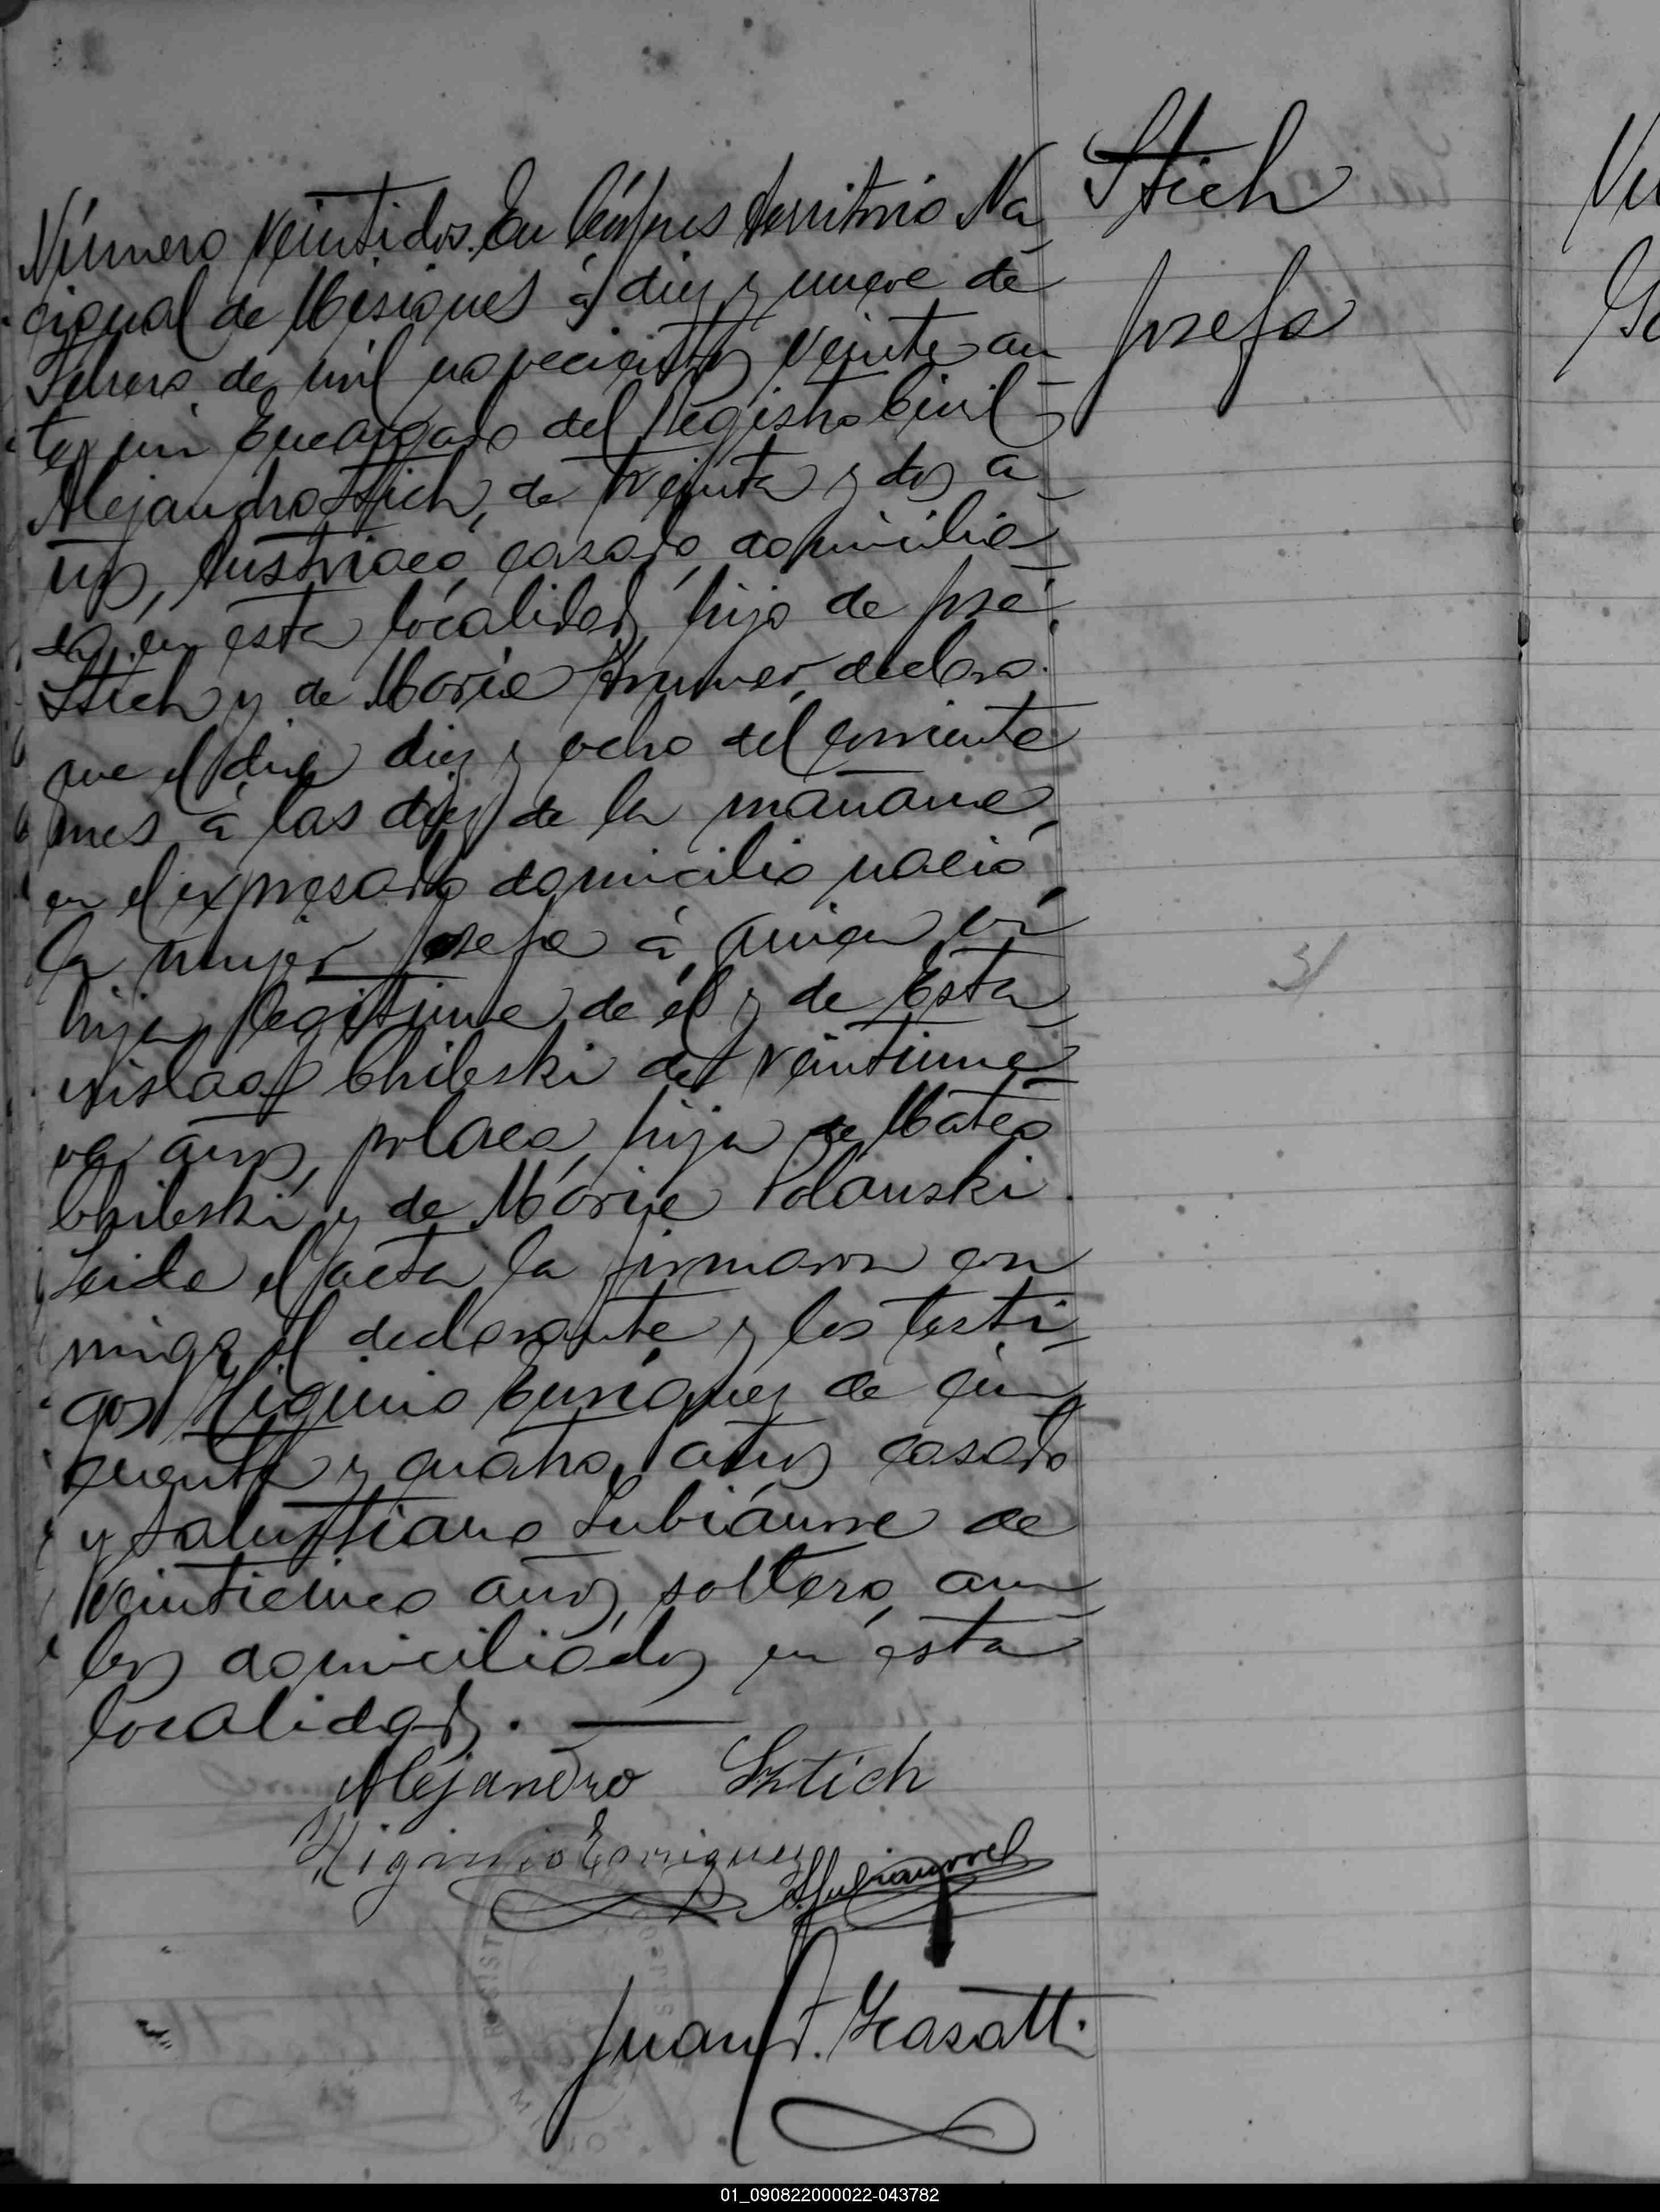 Stich
Josefa
Número veintidos. En Cónpus territorio Na
cional de Misiones á diez y nueve de
Febrero de mil novecientos veinte an
te mi Encargado del Registro Civil
Alejandro Stich, de treinta y dos a
ños, Austriaco, casado, domicilia
do en esta localidad, hijo de José
Stich y de Maria declara:
que el dia diez y ocho del corriente
mes á las diez de la mañana,
en el expresado domicilio nació
la mujer Josefa á quien vi
hija legitima de él y de Esta
nislada Chileski de veintinue
ve años, polaca, hija de Mateo
Chileski y de Maria Polanski.
Leida el acta la firmaron con
migo el declarante y los testi
gos Higinio Enriquez de cin
cuenta y cuatro años casado
y Salustiano Lubiaurre de
veinticinco años, soltero, am
bos domiciliados en esta
localidad.
Alejandro Sztich
Higinio Enriquez
S. Lubiaurre
Juan F.
REGIST
01_090822000022-043782